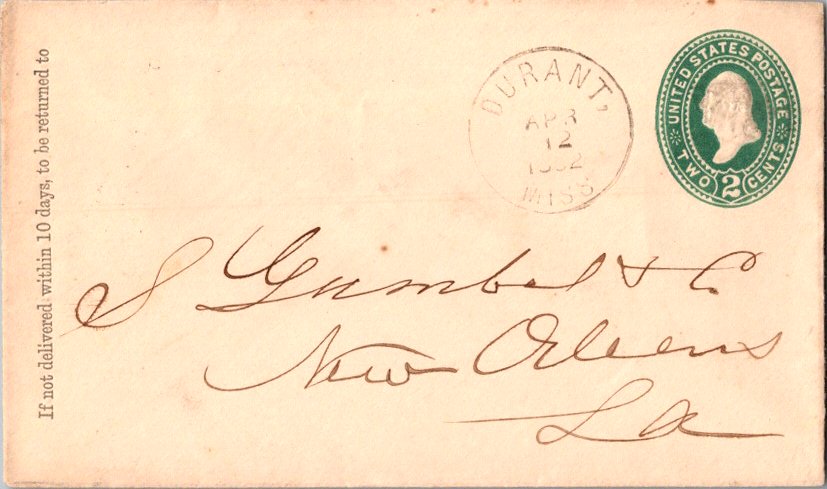 If not delivered within 10 days, to be returned to
DURANT,
APR
12
MISS
UNITED STATES POSTAGE
TWO 2 CENTS
S Gumbel & C.
New Orleans
La